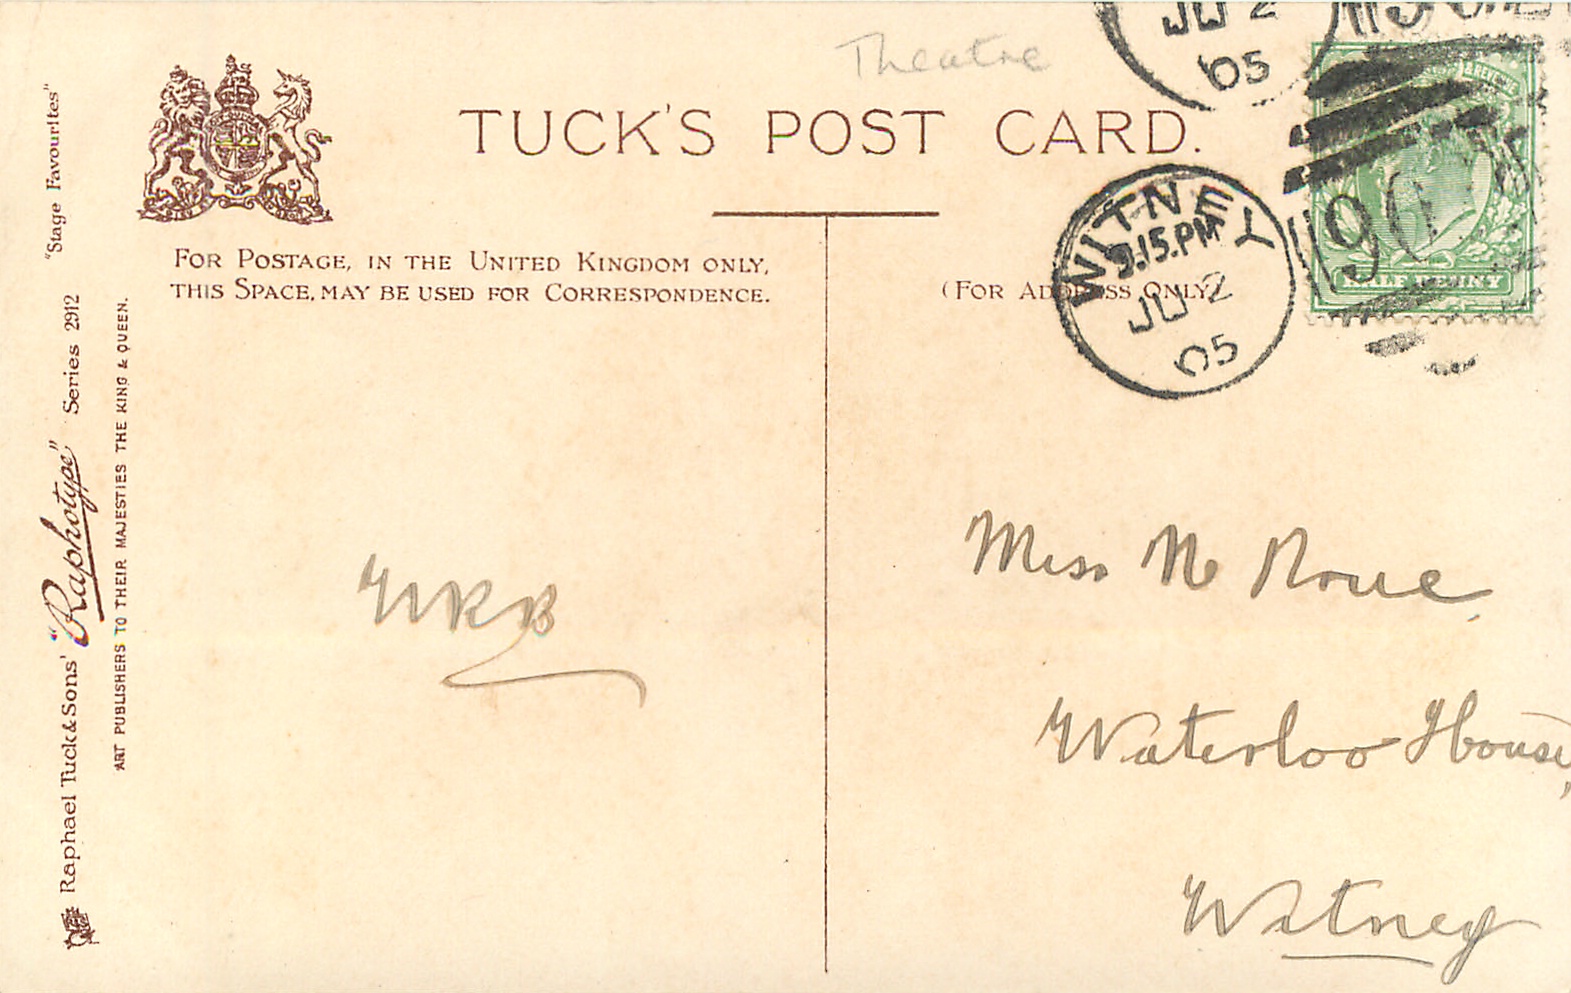 Theatre
TUCK'S POST CARD.
FOR POSTAGE, IN THE UNITED KINGDOM ONLY,
THIS SPACE, MAY BE USED FOR CORRESPONDENCE.
(FOR ADDRESS ONLY)
JU 2
05
WITNEY
9.15.PM
JU 2
05
& REVENUE
HALF PENNY
Miss N Rowe
Waterloo House,
Witney
"Stage Favourites"
Raphael Tuck & Sons' "Raphotype" Series 2912
ART PUBLISHERS TO THEIR MAJESTIES THE KING & QUEEN.